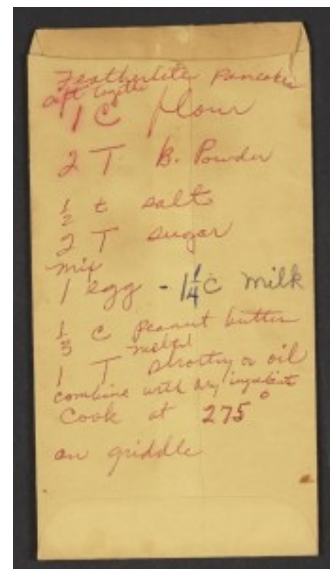 Featherlite Pancakes
Sift together
1 C flour
2 T B. Powder
1/2 t salt
2 T sugar
mix
1 egg - 1 1/4 C milk
1/3 C Peanut butter
1 T melted shortng or oil
combine with dry ingredients
Cook at 275°
on griddle